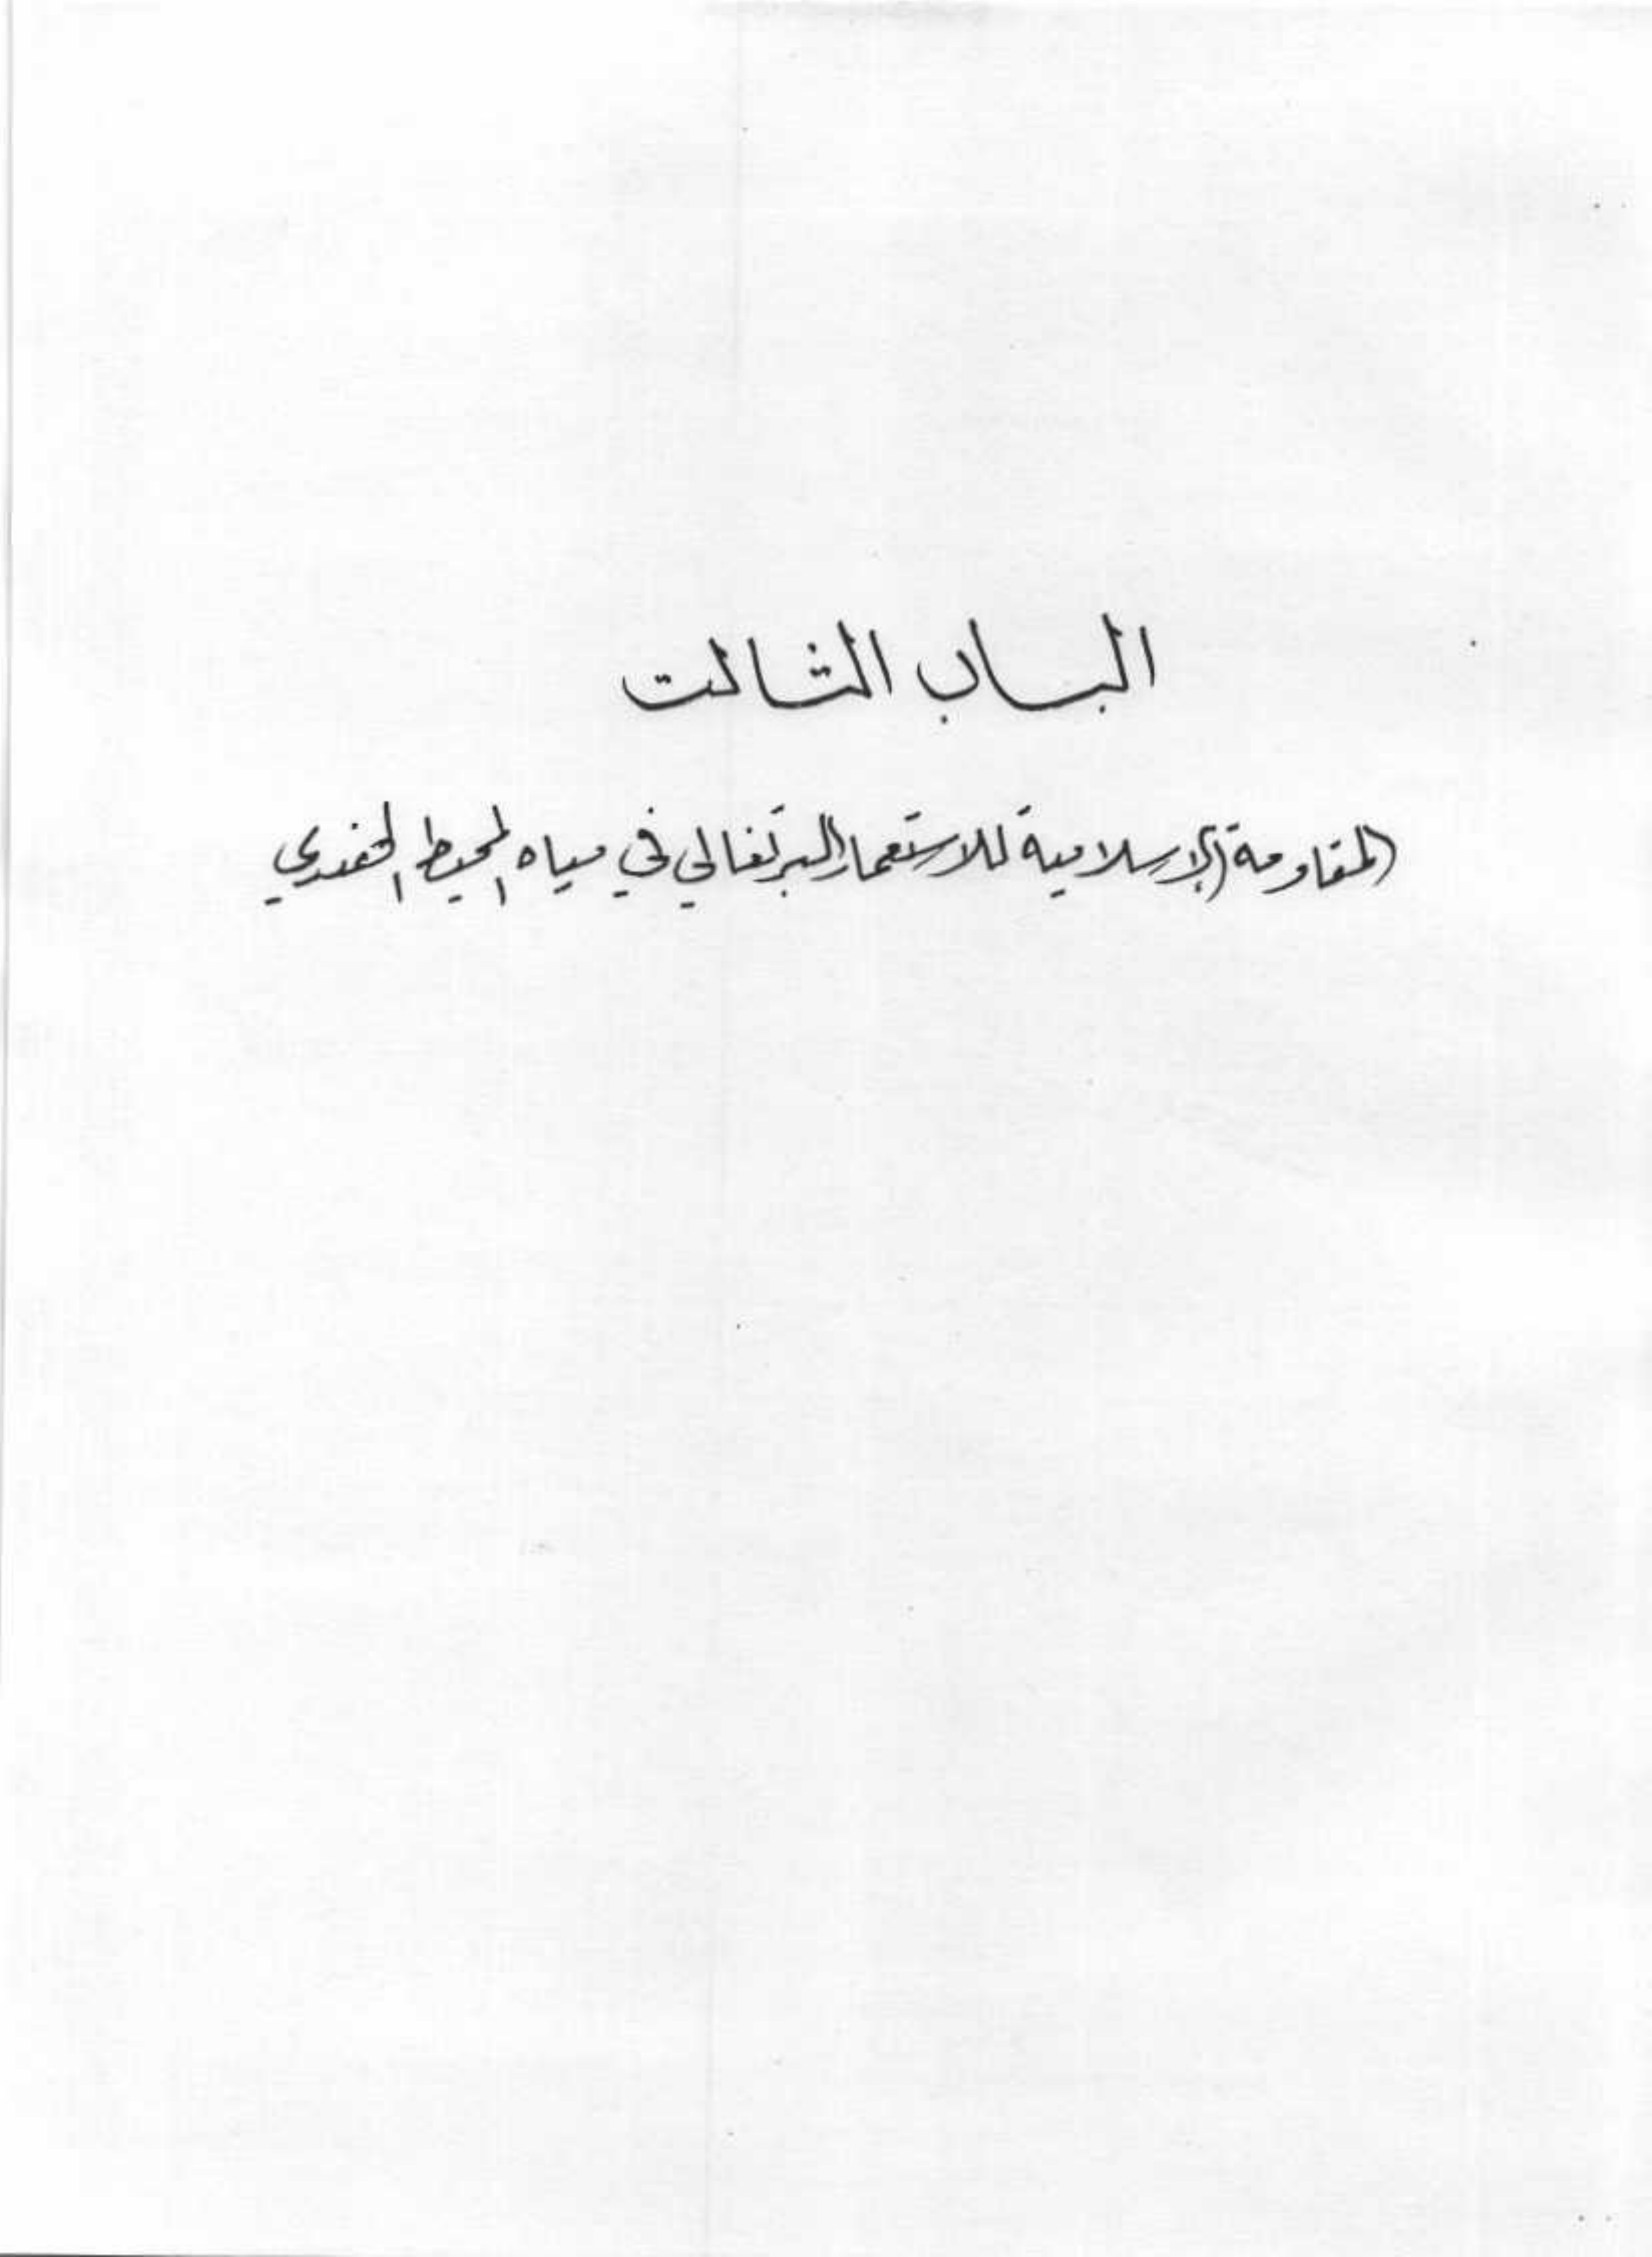 الباب الثالث
المقاومة الإسلامية للاستعمار البرتغالي في مياه المحيط الهندي